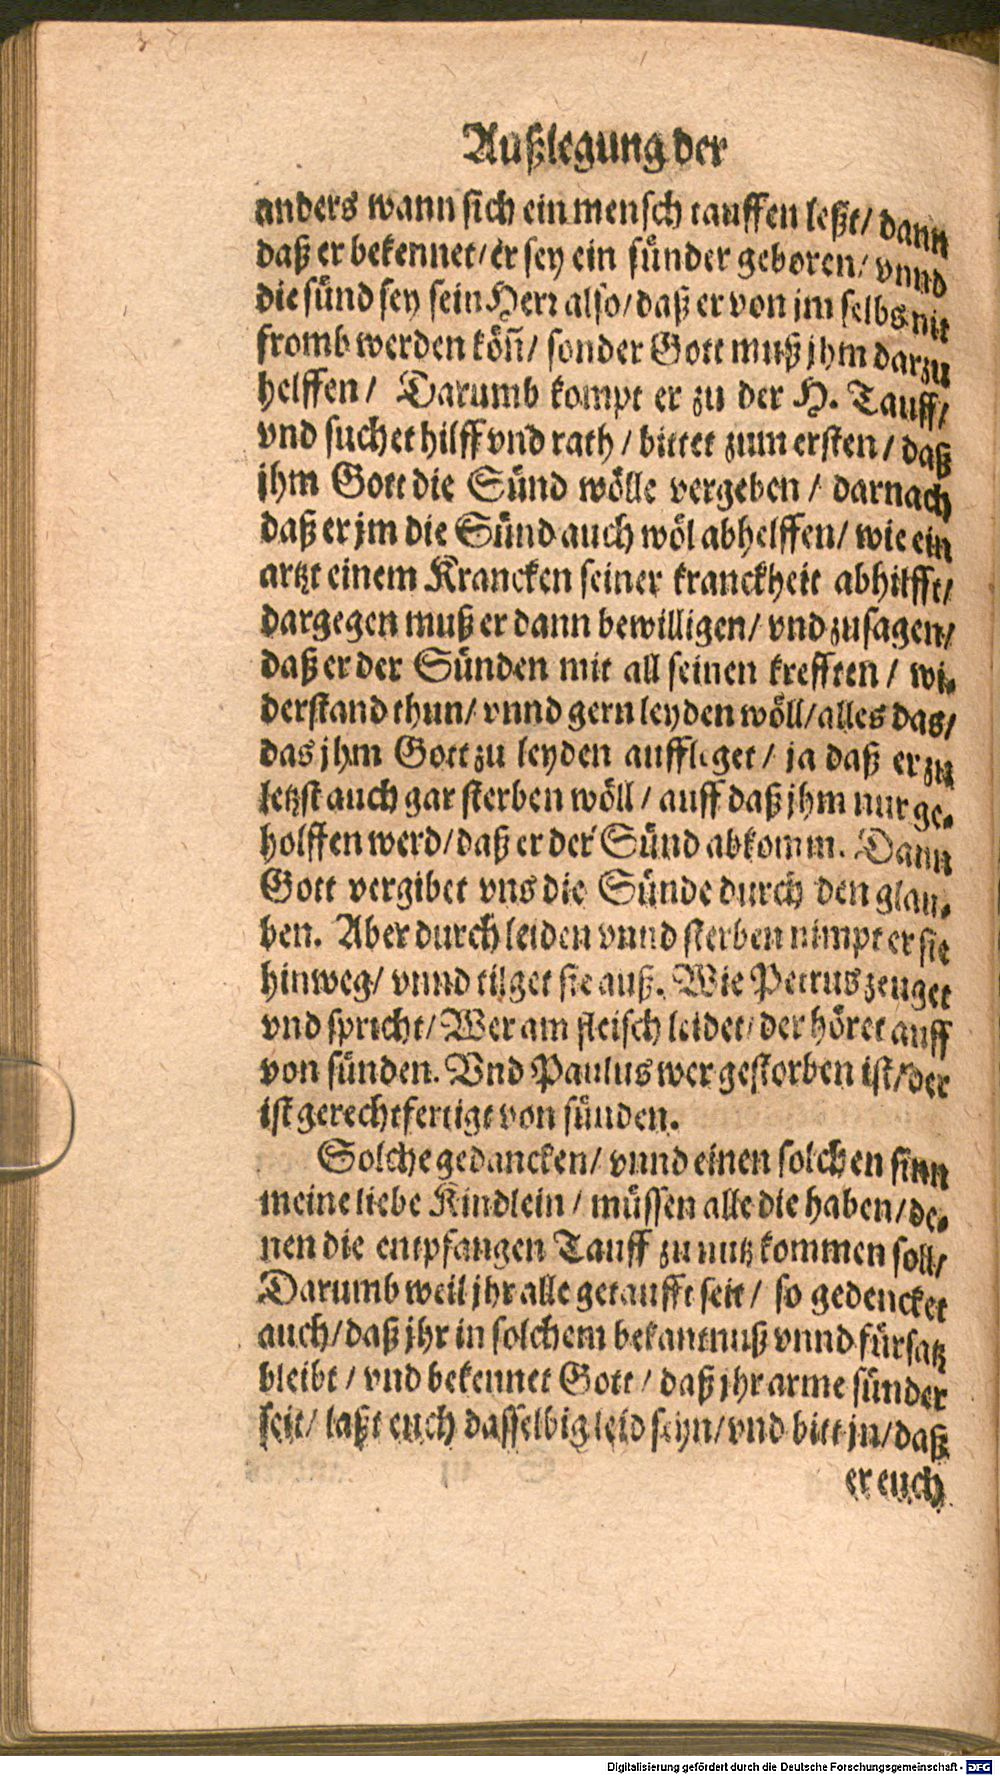 Außlegung der
anders wann sich ein mensch tauffen leßt/ dann
daß er bekennet/ er sey ein sünder geboren/ vnnd
die sünd sey sein Herr also/ daß er von jm selbs nit
fromb werden köñ/ sonder Gott muß jhm darzu
helffen/ Darumb kompt er zu der H. Tauff/
vnd suchet hilff vnd rath/ bittet zum ersten/ daß
jhm Gott die Sünd wölle vergeben/ darnach
daß er jm die Sünd auch wöl abhelffen/ wie ein
artzt einem Krancken seiner kranckheit abhilfft/
dargegen muß er dann bewilligen/ vnd zusagen/
daß er der Sünden mit all seinen krefften/ wi-
derstand thun/ vnnd gern leyden wöll/ alles das/
das jhm Gott zu leyden auffleget/ ja daß er zu
letzst auch gar sterben wöll/ auff daß jhm nur ge-
holffen werd/ daß er der Sünd abkomm. Dann
Gott vergibet vns die Sünde durch den glau-
ben. Aber durch leiden vnnd sterben nimpt er sie
hinweg/ vnnd tilget sie auß. Wie Petrus zeuget
vnd spricht/ Wer am fleisch leidet/ der höret auff
von sünden. Vnd Paulus wer gestorben ist/ der
ist gerechtfertigt von sünden.
Solche gedancken/ vnnd einen solchen sinn
meine liebe Kindlein/ müssen alle die haben/ de-
nen die entpfangen Tauff zu nutz kommen soll/
Darumb weil jhr alle getaufft seit/ so gedencket
auch/ daß jhr in solchem bekantnuß vnnd fürsatz
bleibt/ vnd bekennet Gott/ daß jhr arme sünder
seit/ laßt euch dasselbig leid seyn/ vnd bitt jn/ daß
er euch
Digitalisierung gefördert durch die Deutsche Forschungsgemeinschaft - DFG